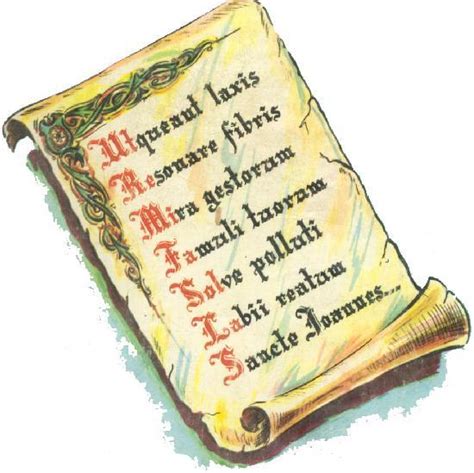 Utqueant laxis
Resonare fibris
Mira gestorum
Famuli tuorum
Solve polluti
Labii reatum
Sancte Joannes...